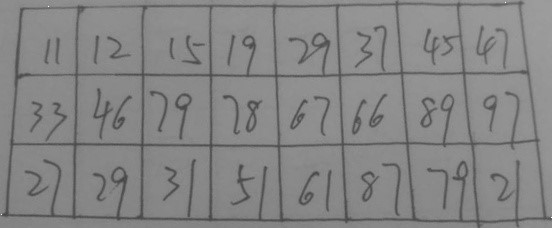 11 12 15 19 29 37 45 47
33 46 79 78 67 66 89 97
27 29 31 51 61 87 79 21